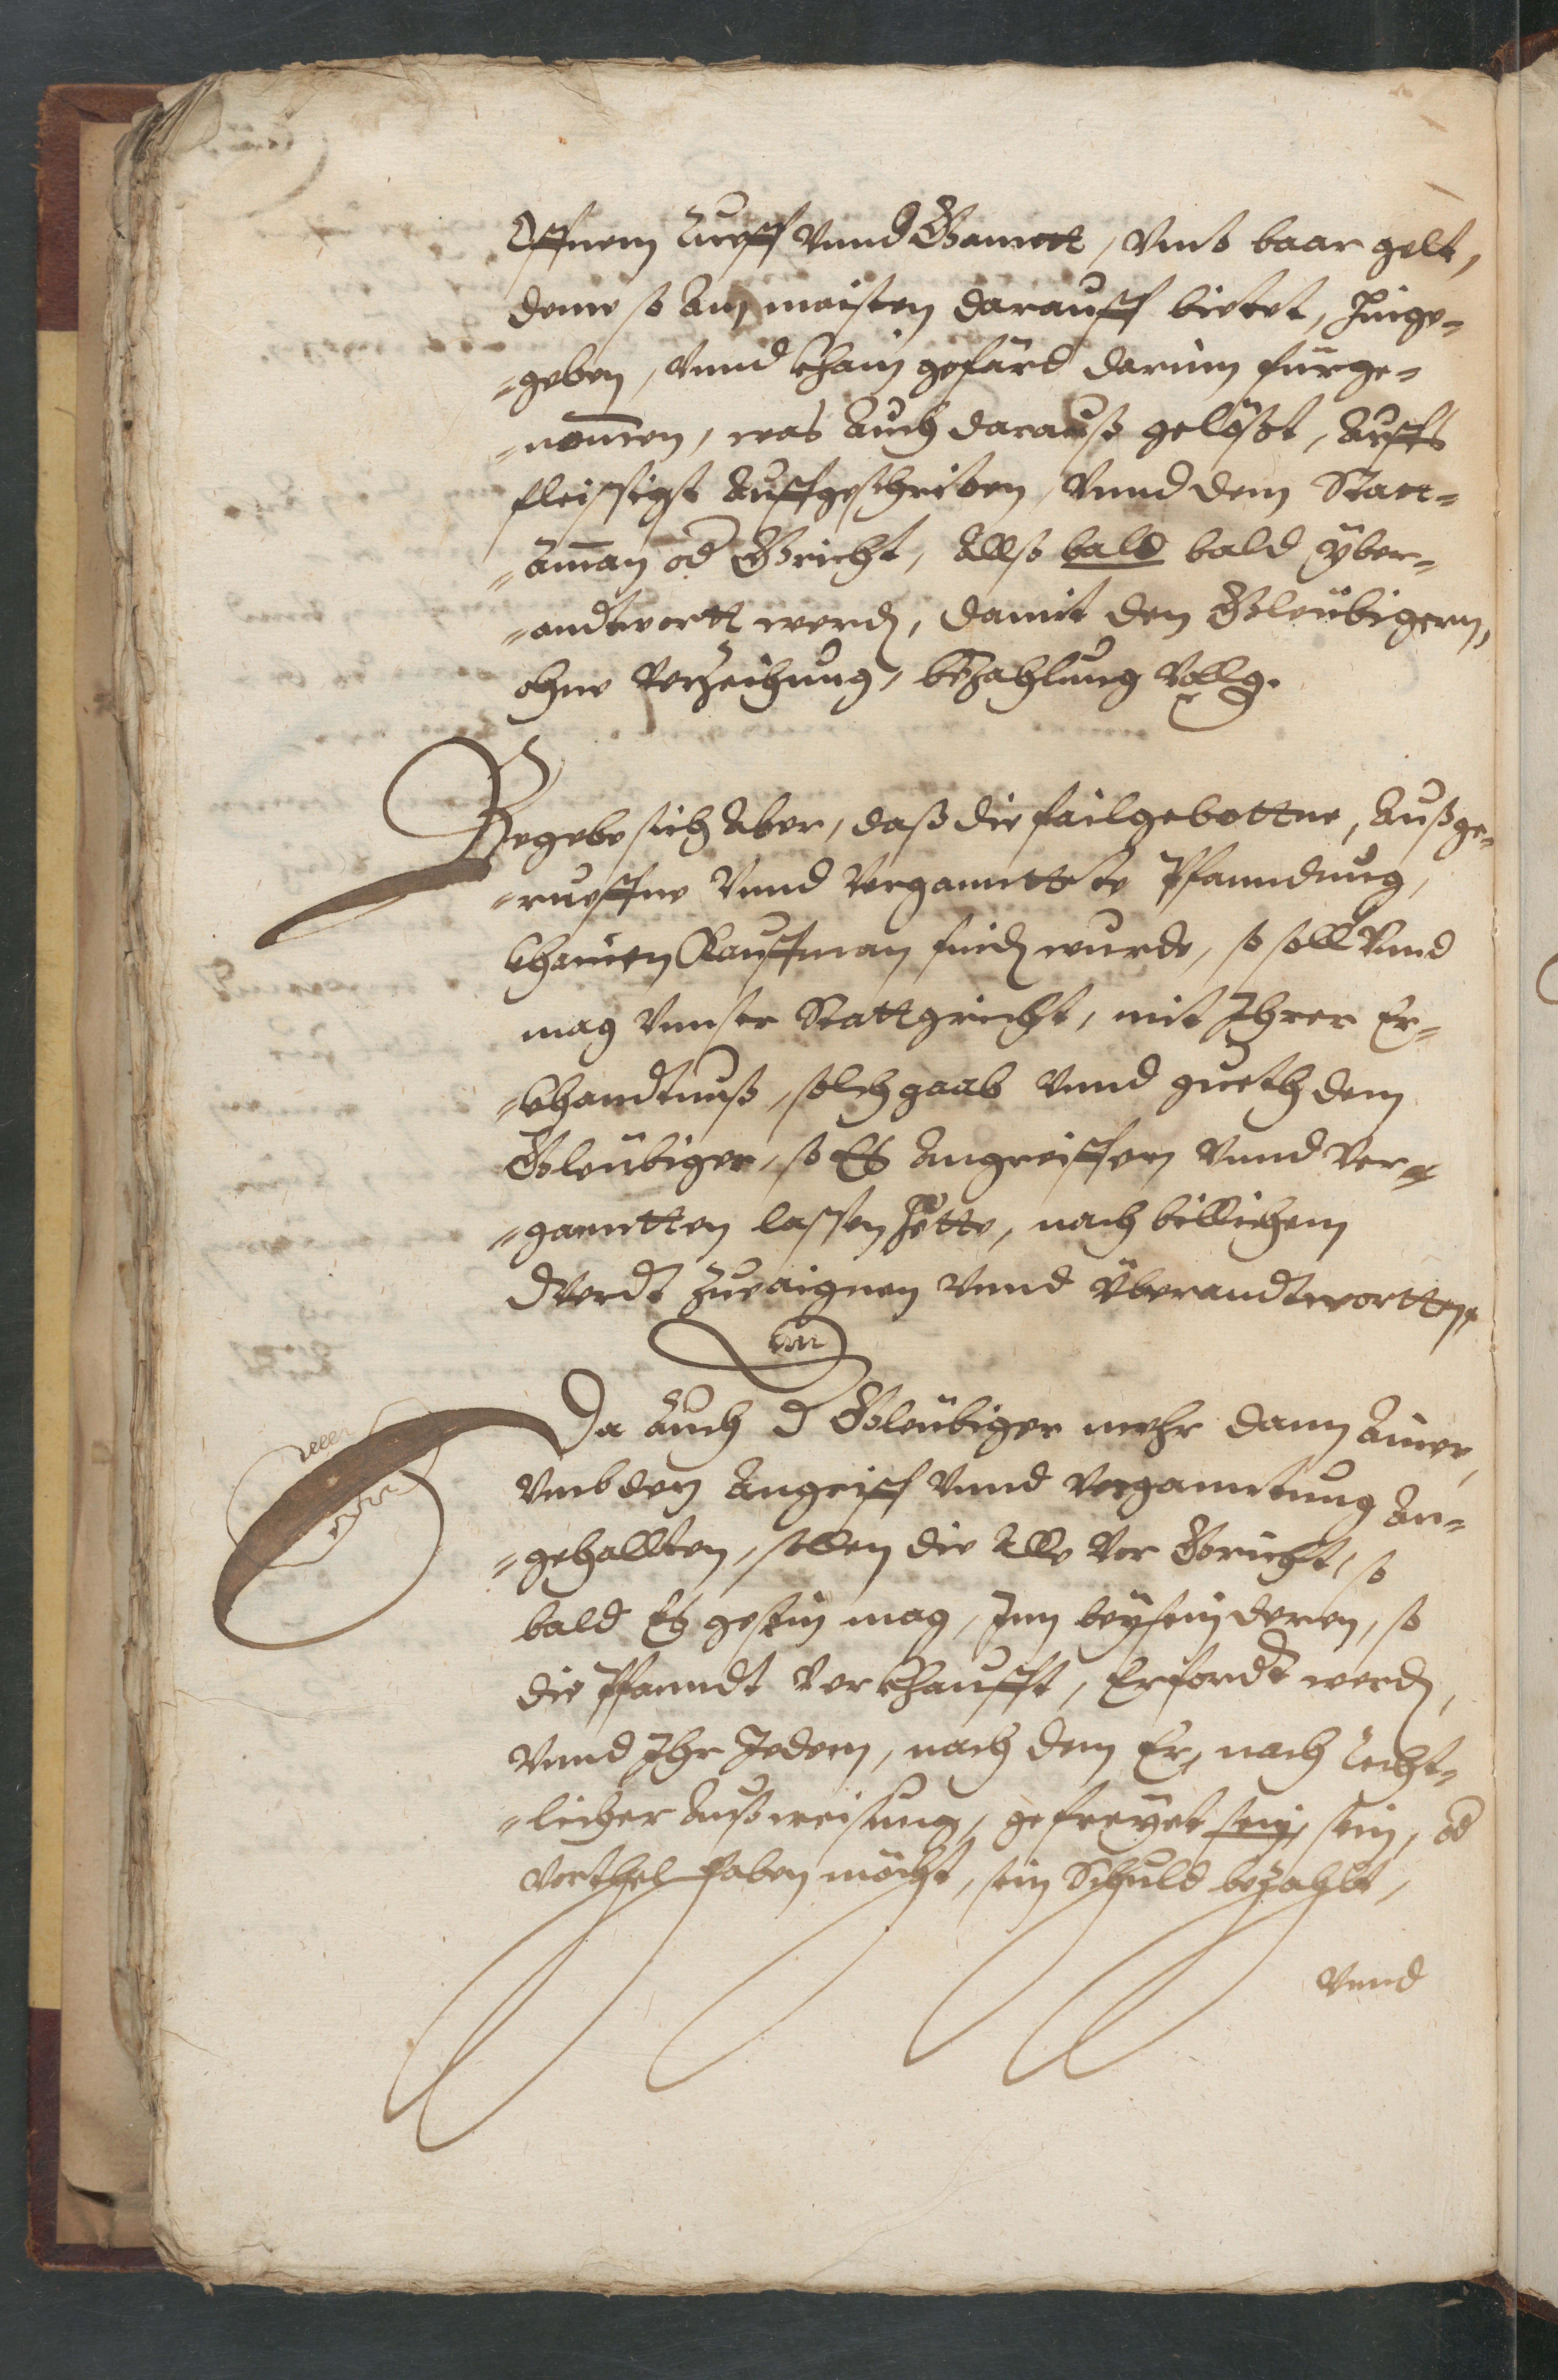 Offnem Rueff vnnd Ganntt, vmb baar gelt,
deme so am maisten darauff bietet, hinge¬
¬geben, vnnd khain gefärd darinn fürge¬
¬nom̄en, was auch darauß gelößt, auffs
fleissigst auffgeschriben, vnnd dem Statt¬
¬am̄an od Gricht, allso bald bald über¬
¬andtwortt werdn, damit den Gleübigern,
ohne verzeihung, bezahlung volg.
Begebe sich aber, daß die failgebottne, außge¬
¬rueffne vnnd verganntte te Pfanndung,
khainen Kauffman findn wurde, so soll vnnd
mag vnnser Stattgricht, mit Ihrer Er¬
¬khandtnuß, solch haab vnnd gueth dem
Gleübiger, so Es angreiffen vnnd ver¬
¬ganntten lassen hette, nach billichem
Werdt zueaignen vnnd überandtwortten.
Da auch d Gleübiger mehr dann ainer,
vmb den Angriff vnnd verganntung an¬
¬gehallten, sollen die alle vor Gericht, so
bald Es gesein mag, Inn beysein deren, so
die Pfanndt verkhaufft, Erfordt werdn,
vnnd Ihr Jedem, nach dem Er, nach recht¬
¬licher außweisung, gefreyet sein, sein, od
vorthel haben möcht, sein Schuld bezahlt,
vnnd